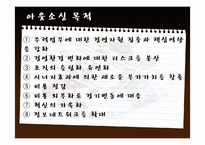 아웃소싱 목적
① 주력업무에 대한 경영자원 집중과 핵심역량
을 강화
② 경영환경변화에 대한 리스크를 분산
③ 조직의 슬림화, 유연화
④ 시너지효과에 의한 새로운 부가가치를 창출
⑤ 비용 절감
⑥ 비용 외부화로 경기변동에 대응
⑦ 혁신의 가속화
⑧ 정보네트워크를 확대